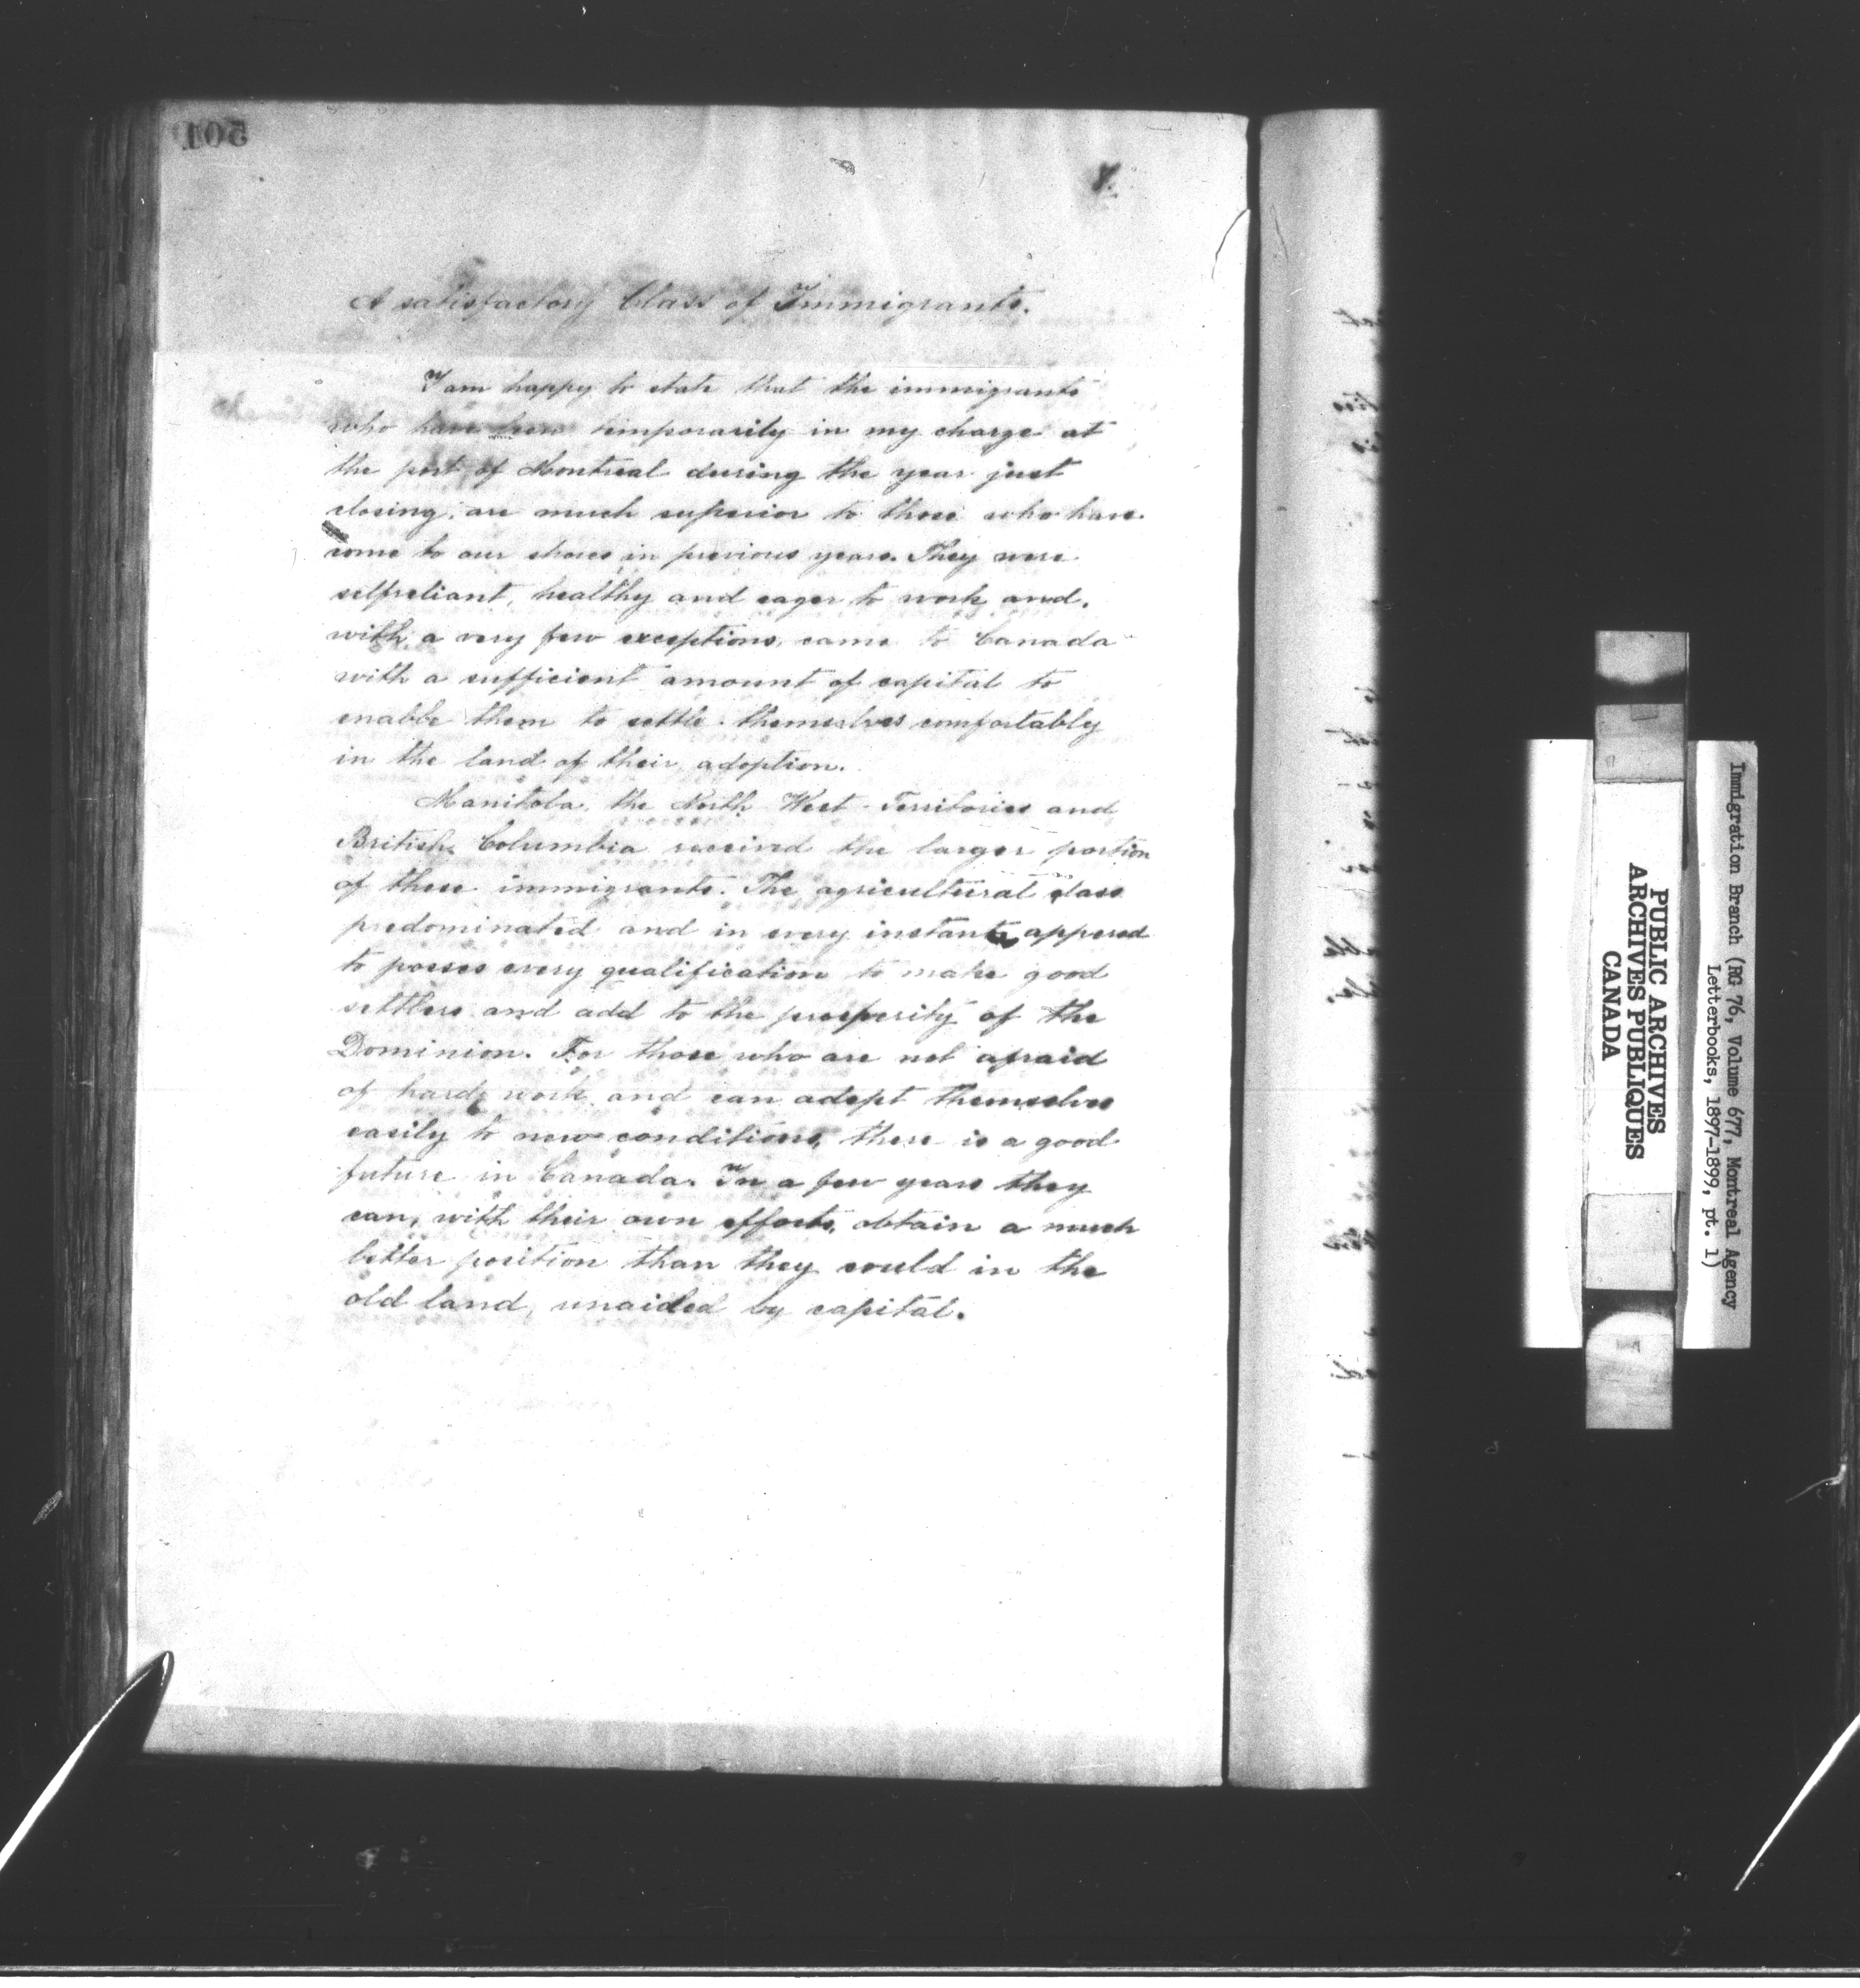 501
A satisfactory Class of Immigrants.
I am happy to state that the immigrants
who have been temporarily in my charge at
the port of Montreal during the year just
closing, are much superior to those who have
come to our shores in previous years. They were
selfreliant, healthy and eager to work and,
with a very few exceptions, came to Canada
with a sufficient amount of capital to
enable them to settle themselves comfortably
in the land of their adoption.
Manitoba, the North West Territories and
British Columbia received the larger portion
of these immigrants. The agricultural class
predominated and in every instance appered
to posses every qualification to make good
settlers and add to the prosperity of the
Dominion. For those who are not afraid
of hard work and can adept themselves
easily to new conditions, there is a good
future in Canada. In a few years they
can, with their own efforts, obtain a much
better position than they could in the
old land, unaided by capital.
Immigration Branch (RG 76, Volume 677, Montreal Agency
Letterbooks, 1897-1899, pt. 1)
PUBLIC ARCHIVES
ARCHIVES PUBLIQUES
CANADA